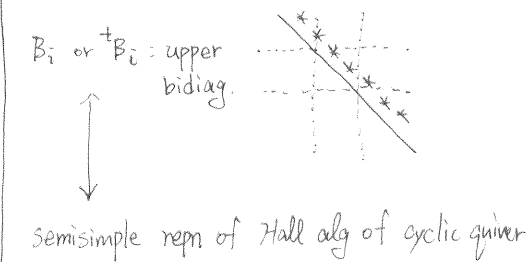 B_i or ^tB_i : upper
bidiag.
semisimple repn of Hall alg of cyclic quiver